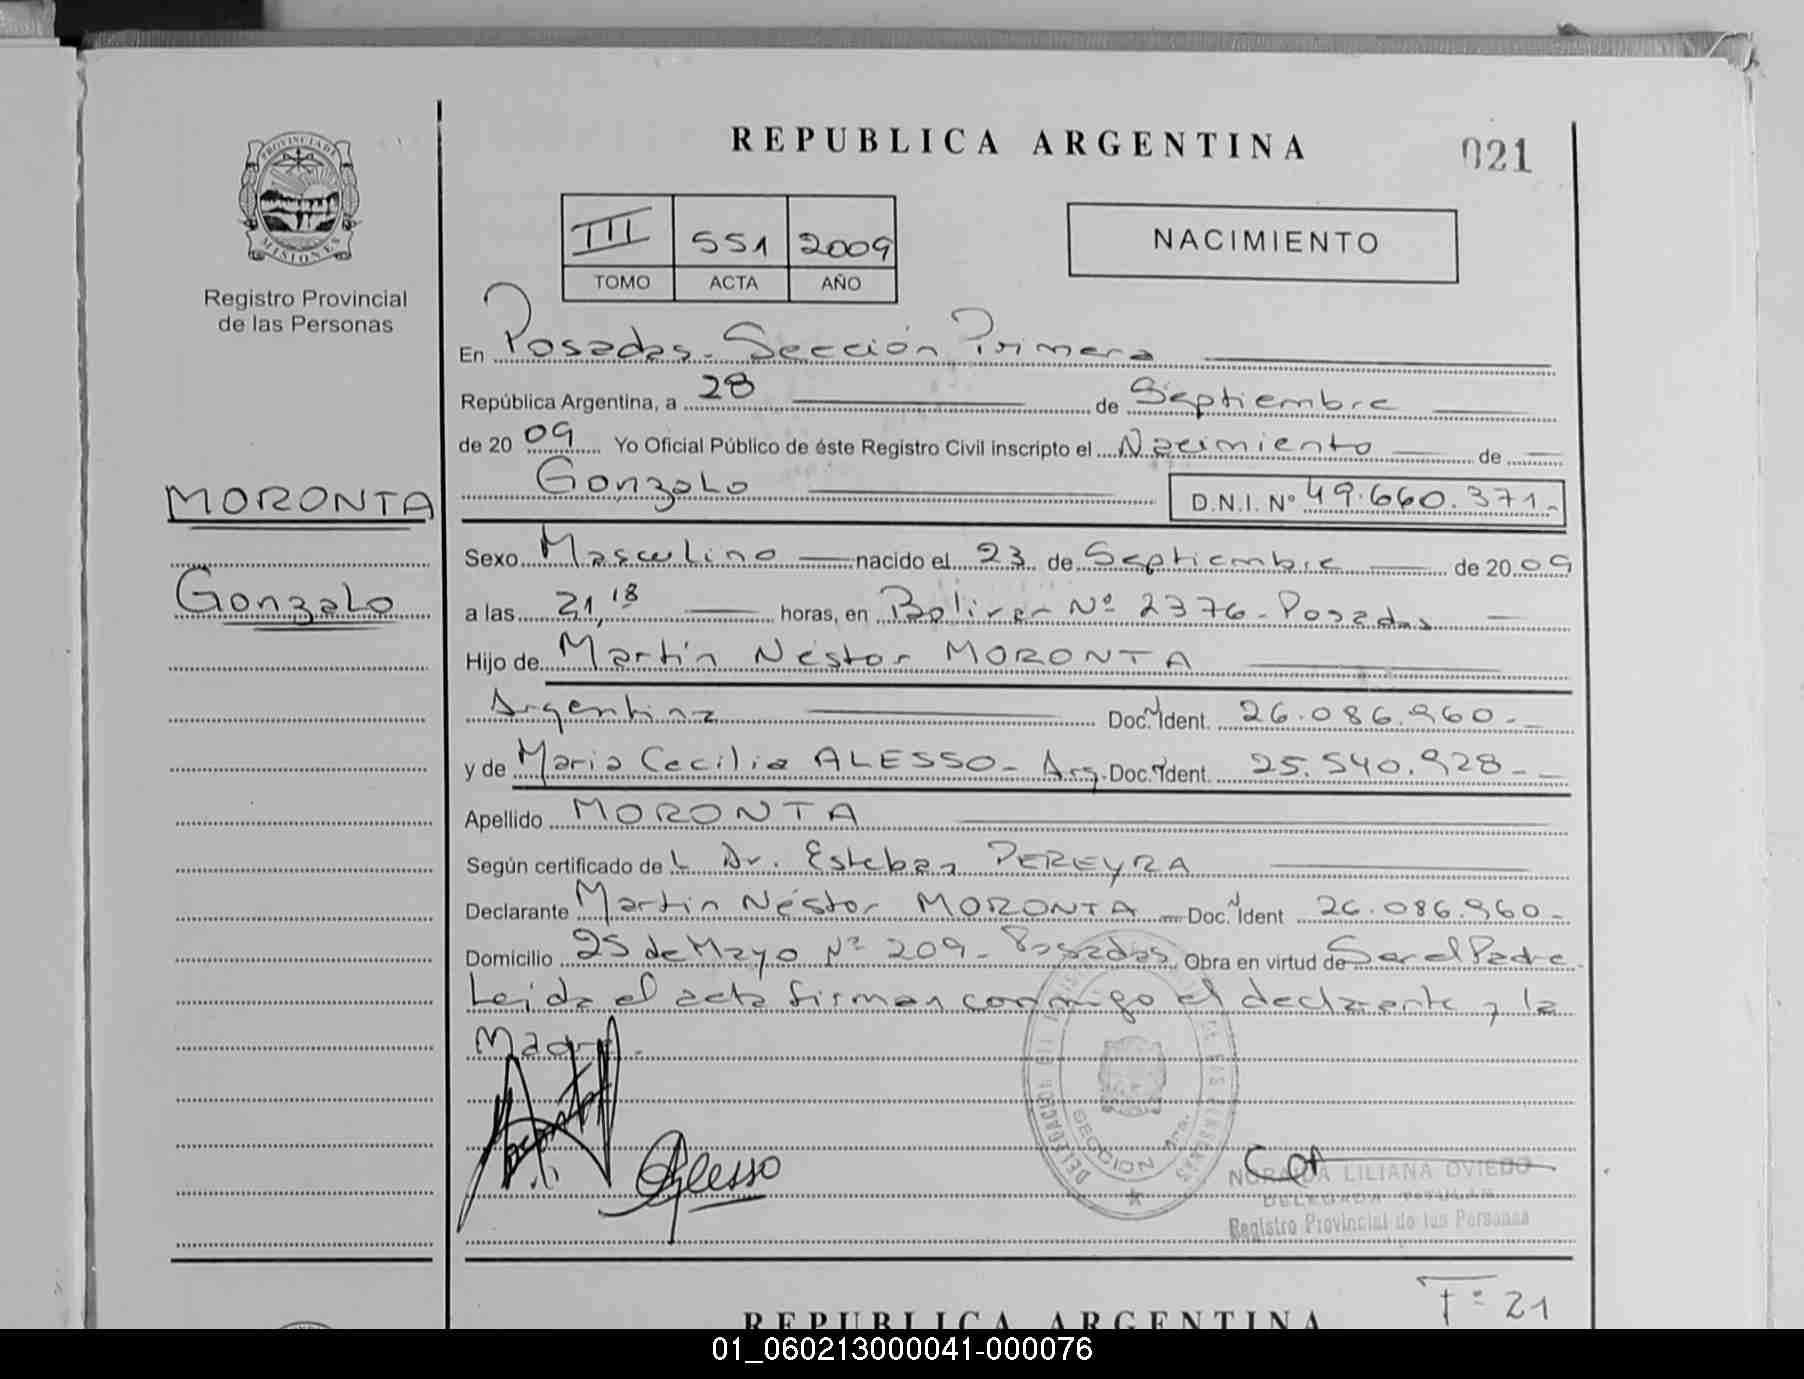 REPUBLICA ARGENTINA
021
PROVINCIA DE MISIONES
Registro Provincial
de las Personas
III 551 2009
TOMO ACTA AÑO
NACIMIENTO
En Posadas - Sección Primera
República Argentina, a 28 de Septiembre
de 2009 Yo Oficial Público de éste Registro Civil inscripto el Nacimiento de
Gonzalo D.N.I. Nº 49.660.371.-
MORONTA
Gonzalo
Sexo Masculino nacido el 23 de Septiembre de 2009
a las 21,18 horas, en Bolivar Nº 2376 - Posadas
Hijo de Martín Néstor MORONTA
Argentina Doc. Ident. 26.086.960.-
y de Maria Cecilia ALESSO - Arg. Doc. Ident. 25.540.928.-
Apellido MORONTA
Según certificado de L Dr. Esteban PEREYRA
Declarante Martín Néstor MORONTA Doc. Ident 26.086.960.-
Domicilio 25 de Mayo Nº 209 - Posadas Obra en virtud de Ser el Padre
Leida el acta firman conmigo el declarante y la
Madre.
Alesso
SECCION 1ra.
LILIANA OVIEDO
DELEGADA TITULAR
Registro Provincial de las Personas
Tº 21
REPUBLICA ARGENTINA
01_060213000041-000076